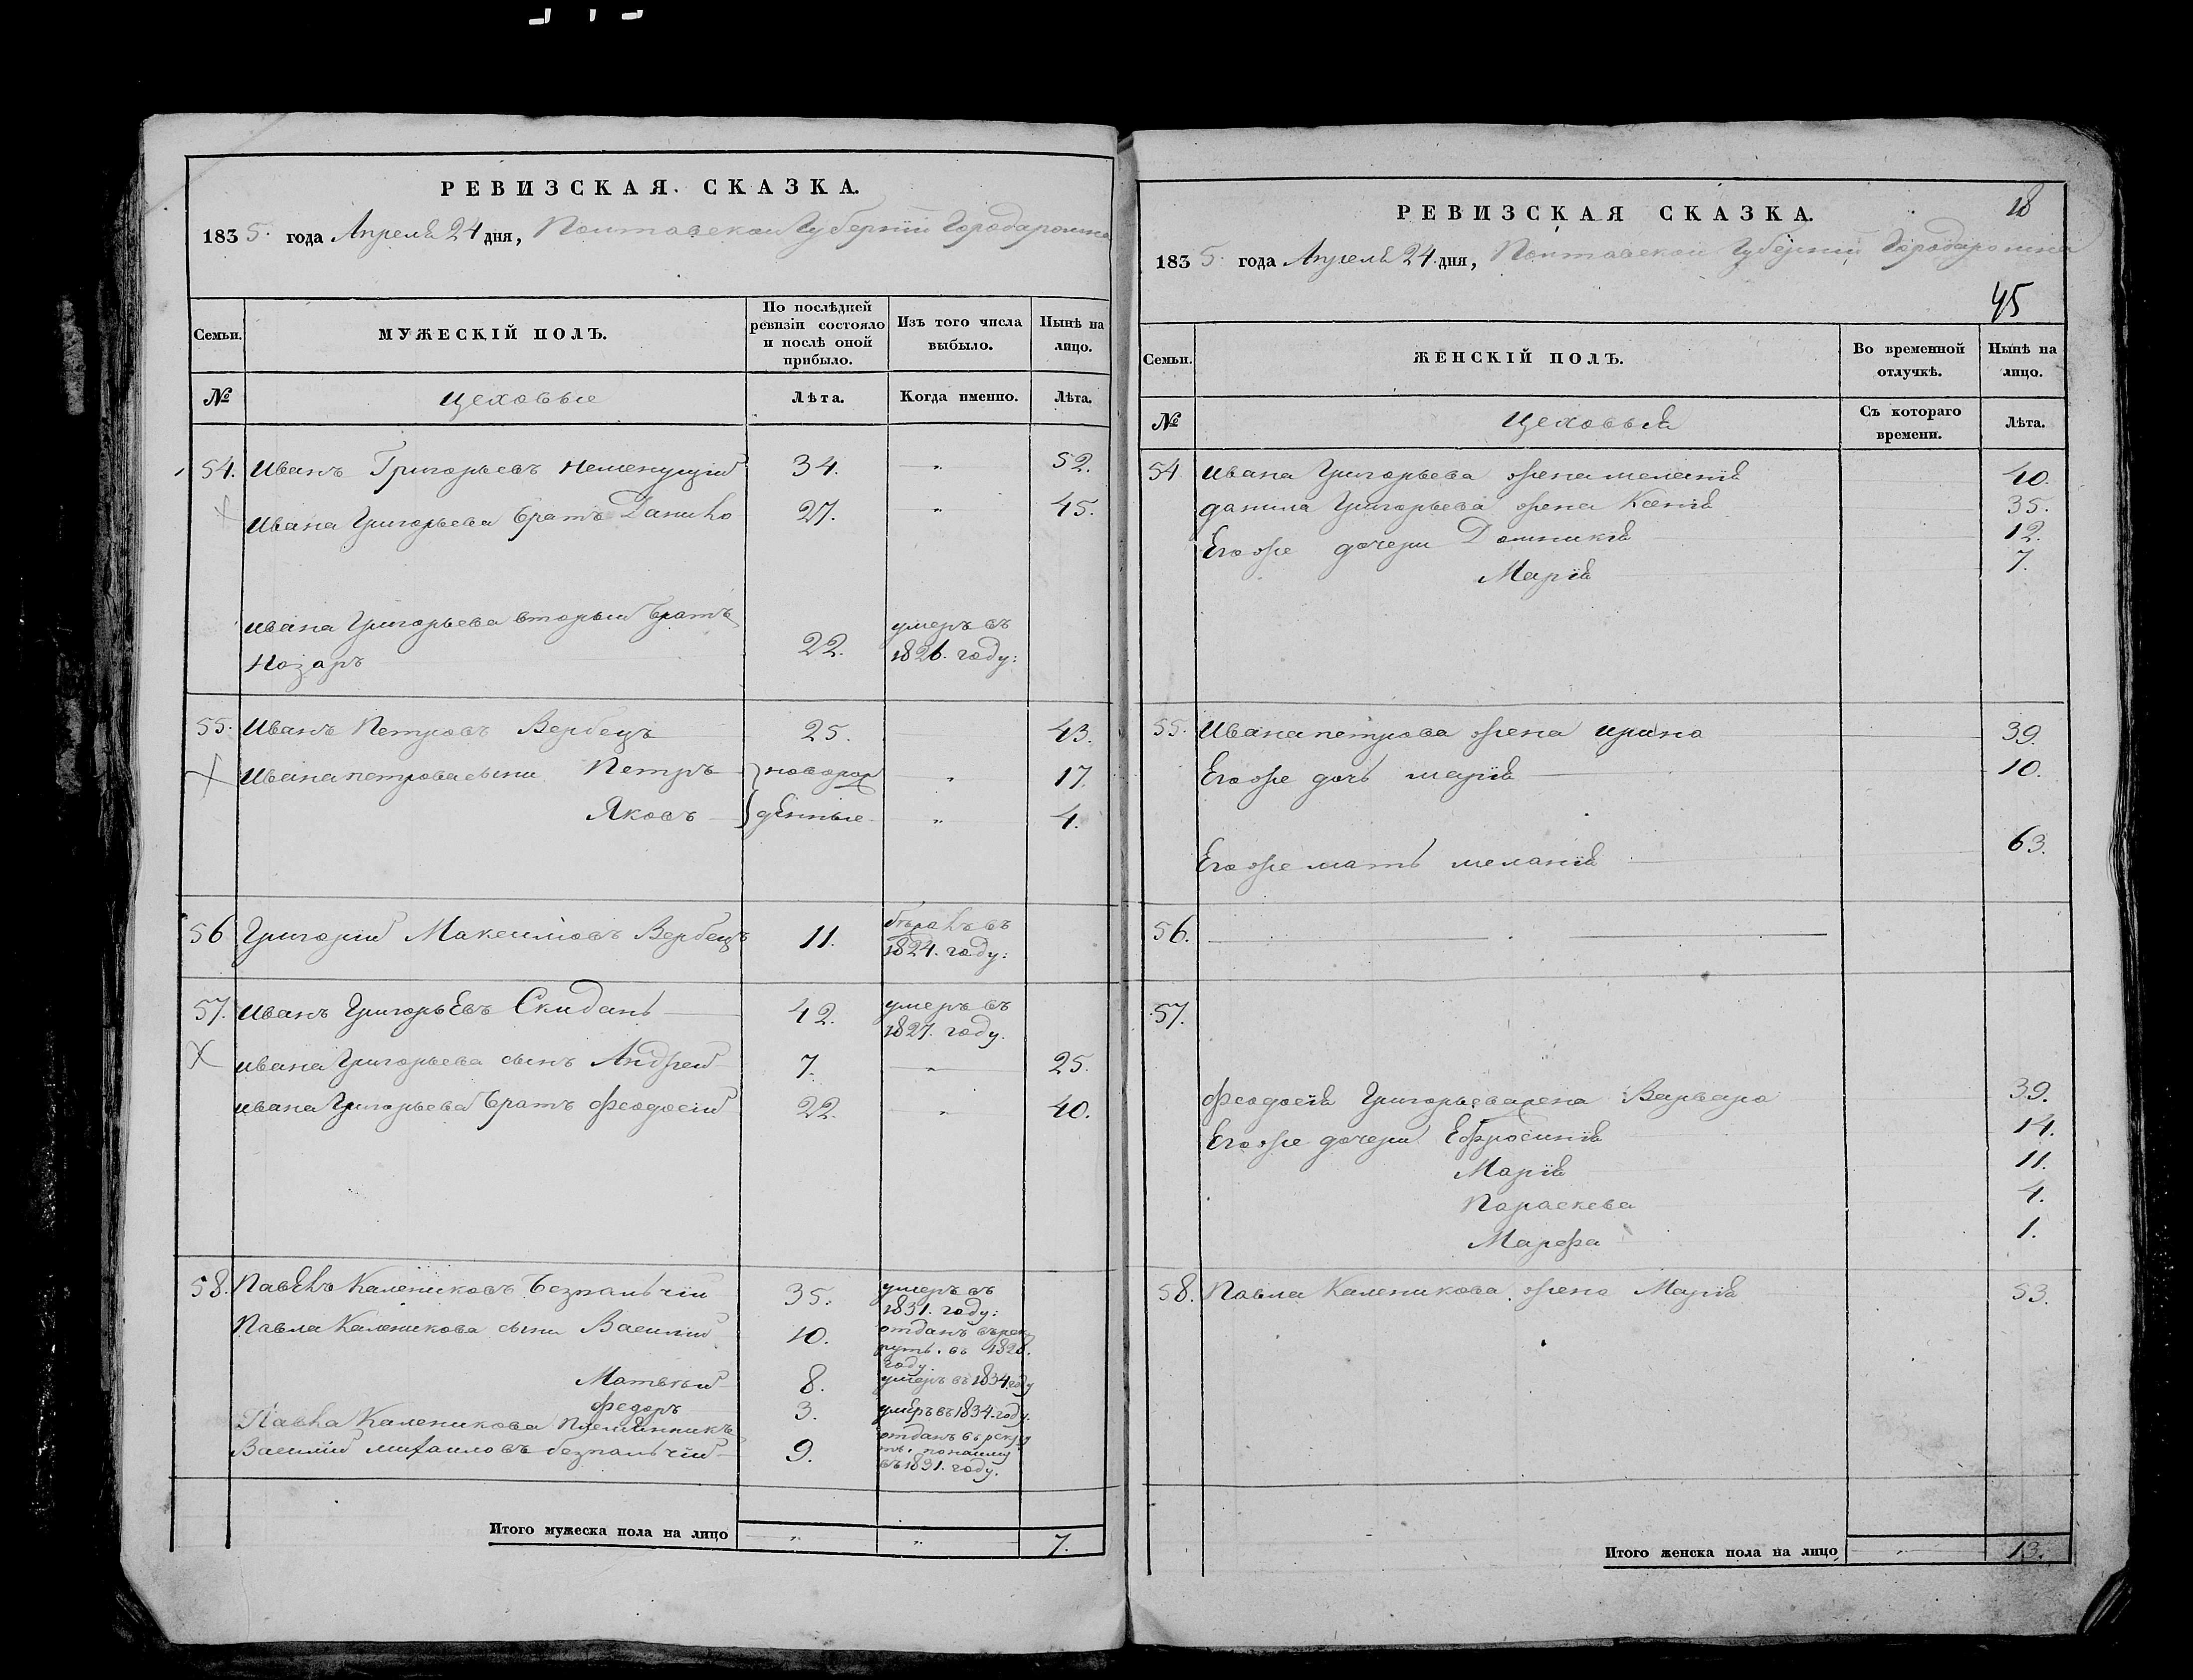 РЕВИЗСКАЯ СКАЗКА.
1835. года Апреля 24 дня, Полтавской Губернии Города Ромна
Семьи.
МУЖЕСКІЙ ПОЛЪ.
По послѣдней ревизіи состояло и послѣ оной прибыло.
Изъ того числа выбыло.
Нынѣ на лицо.
№
Цеховые
Лѣта.
Когда именно.
Лѣта.
54. Иванъ Григорьевъ 34. " 52.
Ивана Григорьева братъ Данило 27. " 45.
Ивана Григорьева вторый братъ
Назаръ 22. умеръ въ
1826. году:
55. Иванъ Петровъ Вербецъ 25. 43.
Ивана Петрова сыны Петръ новорож " 17.
Яковъ денные " 4.
56 Григорій Максимовъ Вербецъ 11. въ
1824. году:
57. Иванъ Григорьевъ Скидань 42. умеръ въ
1827. году.
Ивана Григорьева сынъ Андрей 7. " 25.
Ивана Григорьева братъ Феодосій 22. " 40.
58. Павелъ Калениковъ Безпальчій 35. умеръ въ
1831. году:
Павла Каленикова сыны Василій 10. отданъ въ рек
рутъ. въ 1828.
году.
Матвѣй 8. умеръ въ 1834 году
Федоръ 3. умеръ въ 1834. году.
Павла Каленикова племянникъ
Василій Михайловъ Безпальчій 9. отданъ в рекру
ты. по найму
въ 1831. году.
Итого мужеска пола на лицо " " 7.
18
РЕВИЗСКАЯ СКАЗКА.
1835. года Апреля 24. дня, Полтавской Губернии Города Ромна
45
Семьи.
ЖЕНСКІЙ ПОЛЪ.
Во временной отлучкѣ.
Нынѣ на лицо.
№
Цеховыя
Съ котораго времени.
Лѣта.
54 Ивана Григорьева жена Меланія 40.
Данила Григорьева жена Ксенія 35.
Его же дочери Домникія 12.
Марія 7.
55. Ивана Петрова жена Ирина 39.
Его же дочь Марія 10.
Его же мать Меланія 63.
56.
57.
Феодосія Григорьева жена Варвара 39.
Его же дочери Ефросинія 14.
Марія 11.
Параскева 4.
Марфа 1.
58. Павла Каленикова жена Марія 53.
Итого женска пола на лицо 13.